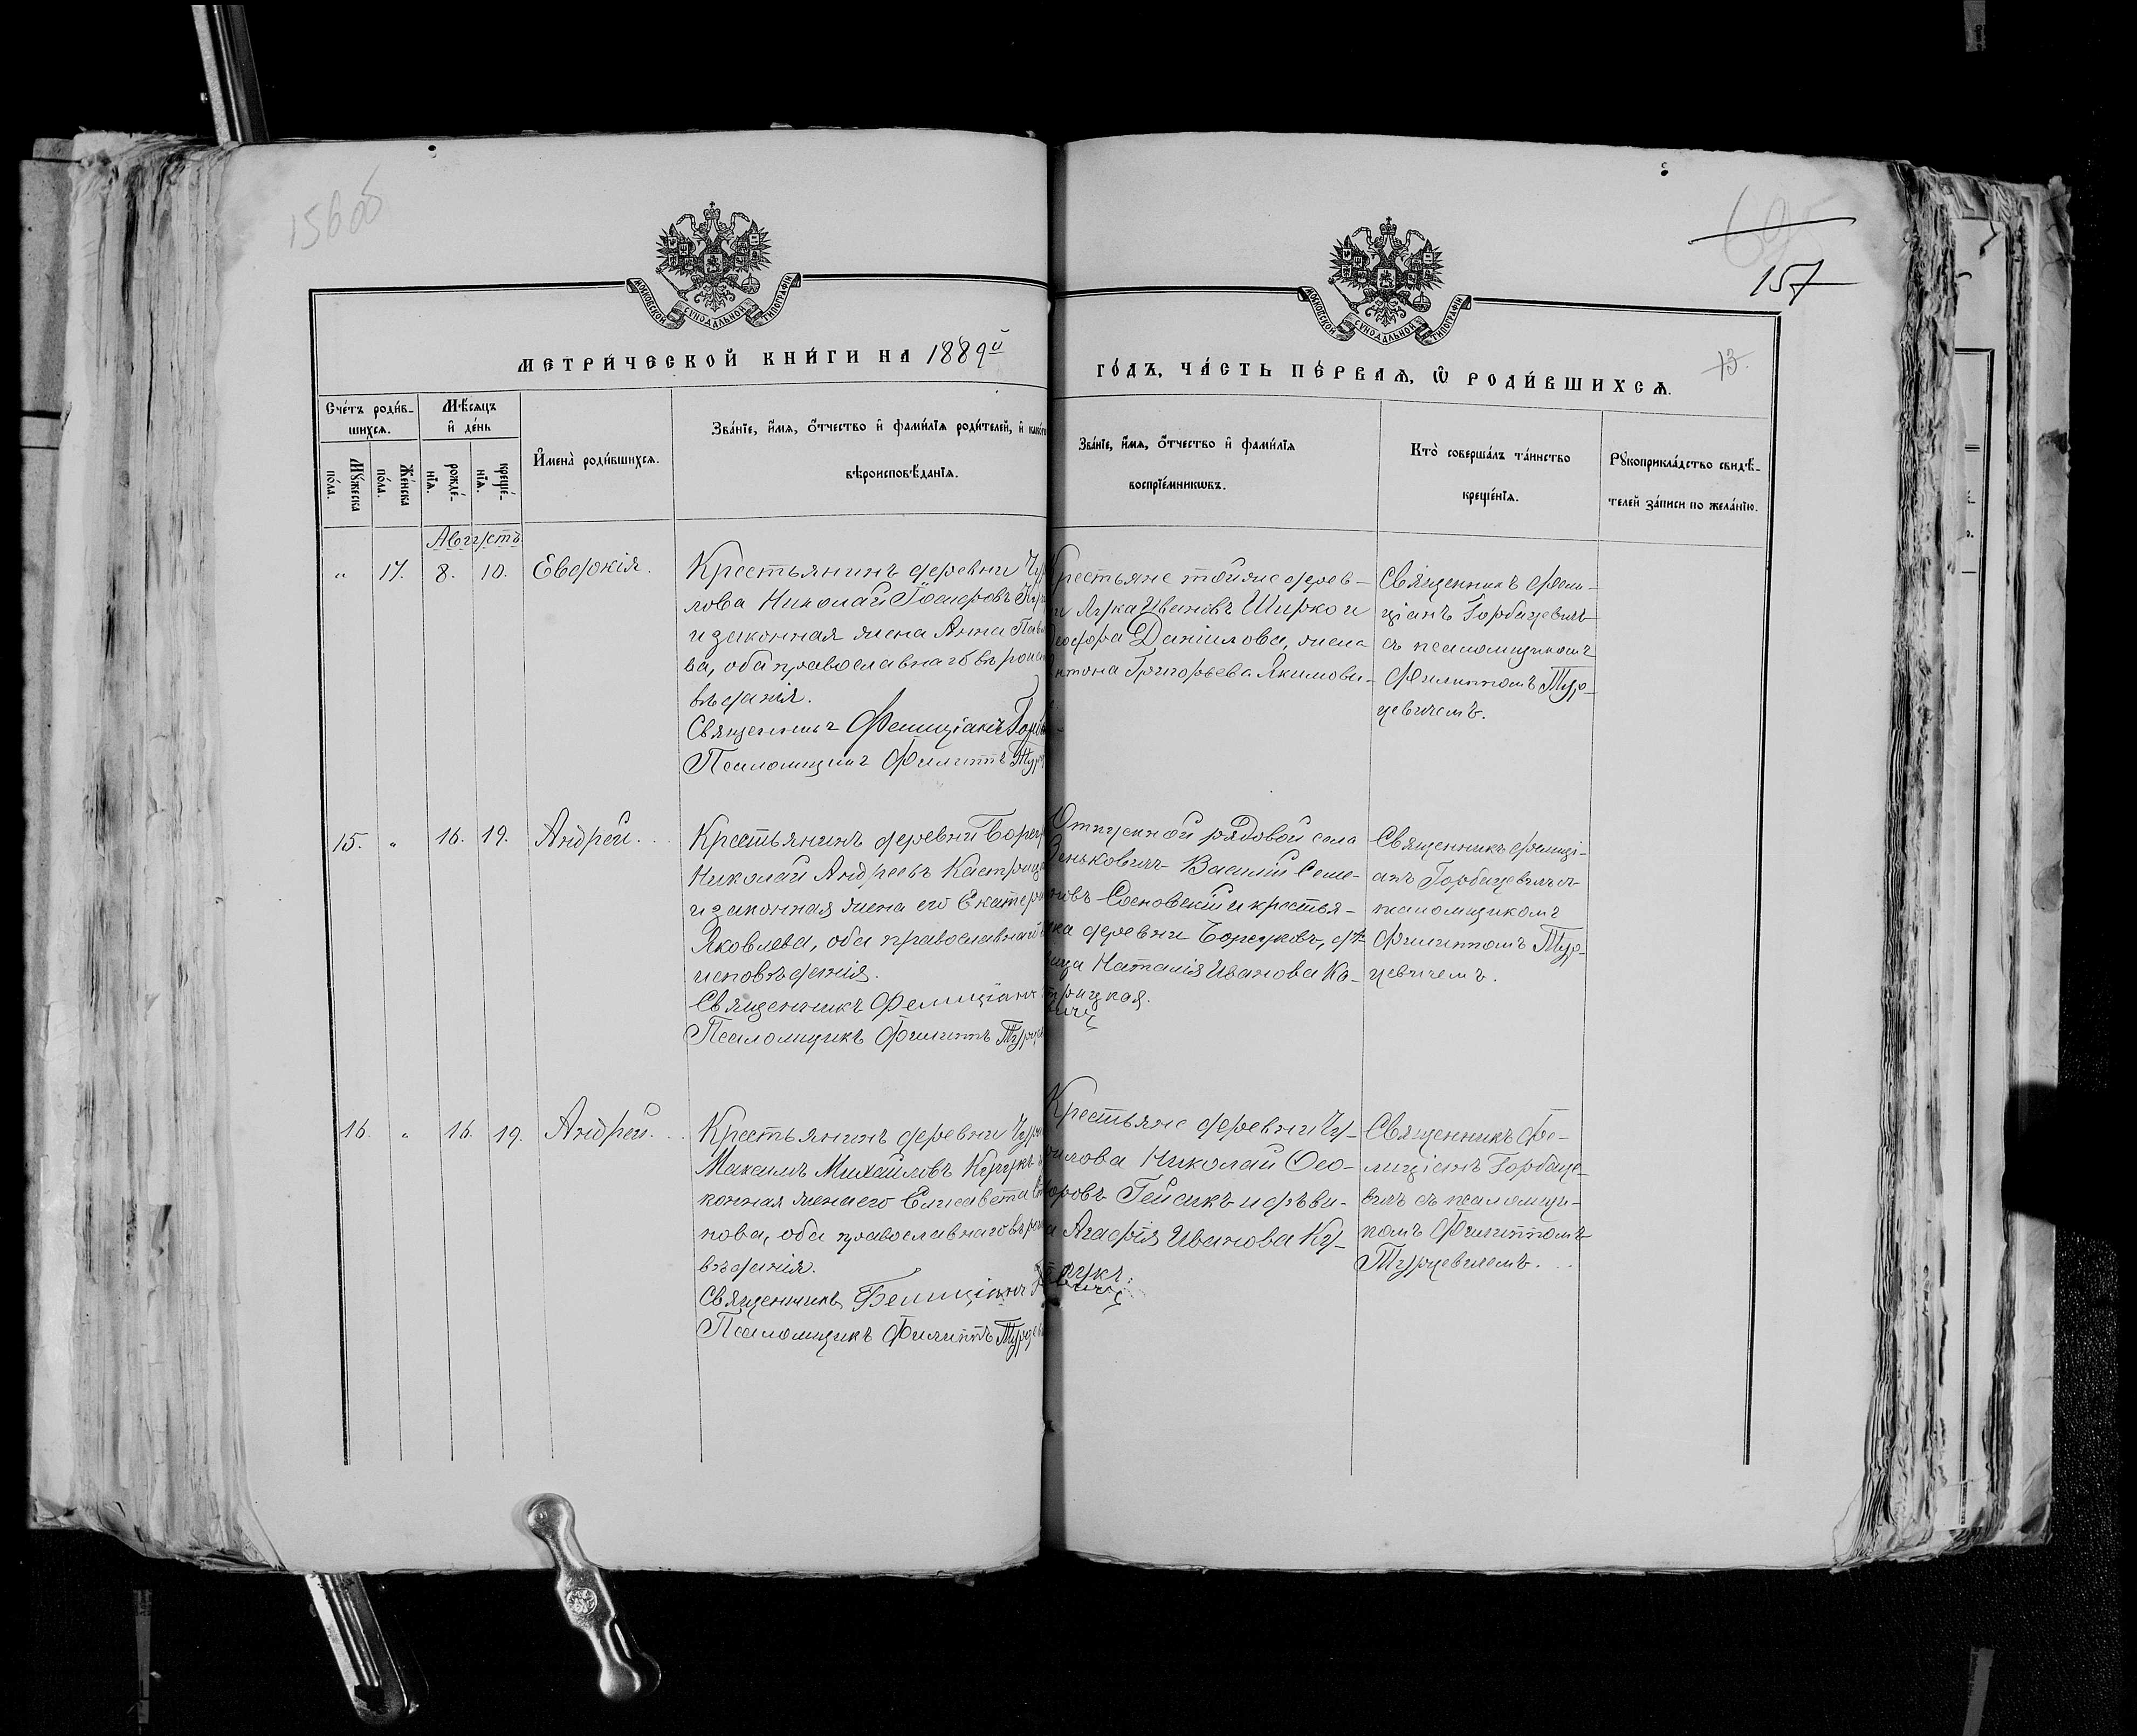 15605
69
157
МОСКОВСКОЙ СѴНОДАЛЬНОЙ ТИПОГРАФІИ
МОСКОВСКОЙ СѴНОДАЛЬНОЙ ТИПОГРАФІИ
МЕТРИ́ЧЕСКОЙ КНИ́ГИ НА 1889й
ГО́ДЪ, ЧА́СТЬ ПЕ́РВАѦ, Ѡ҆ РОДИ́ВШИХСѦ.
13.
Сче́тъ роди́в-
шихсѧ.
Мѣ́сѧцъ
и҆ де́нь
Мꙋ́жеска
по́ла.
Же́нска
по́ла.
рожде́-
нїѧ.
креще́-
нїѧ.
И҆мена̀ роди́вшихсѧ.
Зва́нїе, и҆́мѧ, ѻ҆́тчество и҆ фами́лїѧ роди́телей, и҆
вѣроисповѣ́данїѧ.
Зва́нїе, и҆́мѧ, ѻ҆́тчество и҆ фами́лїѧ
воспрїе́мникѡвъ.
Кто̀ соверша́лъ та́инство
креще́нїѧ.
Рꙋкоприкла́дство свидѣ́-
телей за́писи по жела́нїю.
Августъ
„ 17. 8. 10. Евдокія.
Крестьянинъ деревни
лова Николай
и законная жена Анна
ва, оба православнаго
вѣданія.
Священникъ Фелиціанъ
Псаломщикъ Филиппъ
Крестьяне тойже дерев-
Лука Ивановъ Ширко и
Данилова, жена
Григорьева Якимови-
Священникъ Фели-
ціанъ Горбацевичъ
съ псаломщикомъ
Филиппомъ Тур-
цевичемъ.
15. „ 16. 19. Андрей.
Крестьянинъ деревни
Николай Андреевъ
и законная жена его
Яковлева, оба православнаго
исповѣданія.
Священникъ Фелиціанъ
Псаломщикъ Филиппъ
Отпускной рядовой села
Василій Семе-
новъ Сосновскій и крестья-
нка деревни Борецковъ, дѣ-
вица Наталія Иванова Ка-
стрицкая.
Священникъ Фелиці-
анъ Горбацевичъ съ
псаломщикомъ
Филиппомъ Тур-
цевичемъ.
16. „ 16. 19. Андрей.
Крестьянинъ деревни
Максимъ Михайловъ Кучукъ
конная жена его Елисавета
нова, оба православнаго
вѣданія.
Священникъ Фелиціанъ
Псаломщикъ Филиппъ
Крестьяне деревни Чу-
рилова Николай Ѳео-
доровъ Гейсикъ и дѣви-
ца Агафія Иванова Ку-
чукъ.
Священникъ Фе-
лиціанъ Горбаце-
вичъ съ псаломщи-
комъ Филиппомъ
Турцевичемъ.